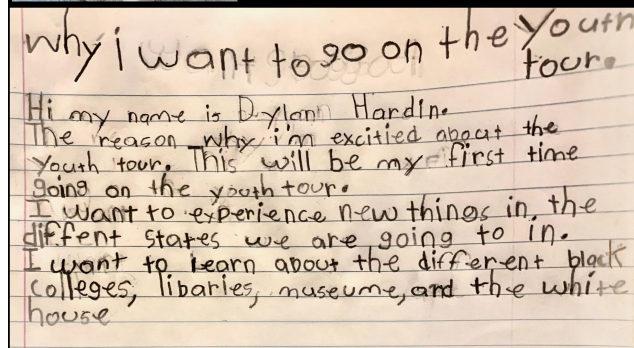 why i want to go on the Youth
tour.
Hi my name is Dylann Hardin.
The reason why i'm excitied about the
Youth tour. This will be my first time
going on the youth tour.
I want to experience new things in the
diffent states we are going to in.
I want to learn about the different black
colleges, libaries, museume, and the white
house